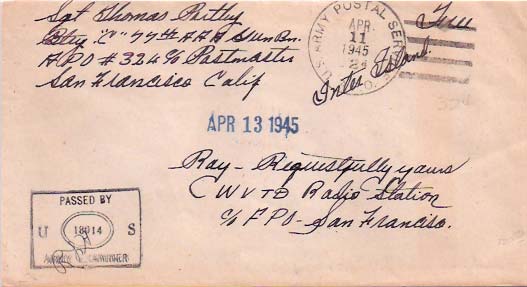 Sgt Thomas
Btry "C" 77th AAA Gun Bn.
APO #324 c/o Postmaster
San Francisco Calif
U.S. ARMY POSTAL SERVICE
APR
11
1945
Free
Inter Island.
APR 13 1945
Ray - Requestfully yours
WVTD Radio Station
c/o FPO - San Francisco.
PASSED BY
U 18014 S
ARMY EXAMINER